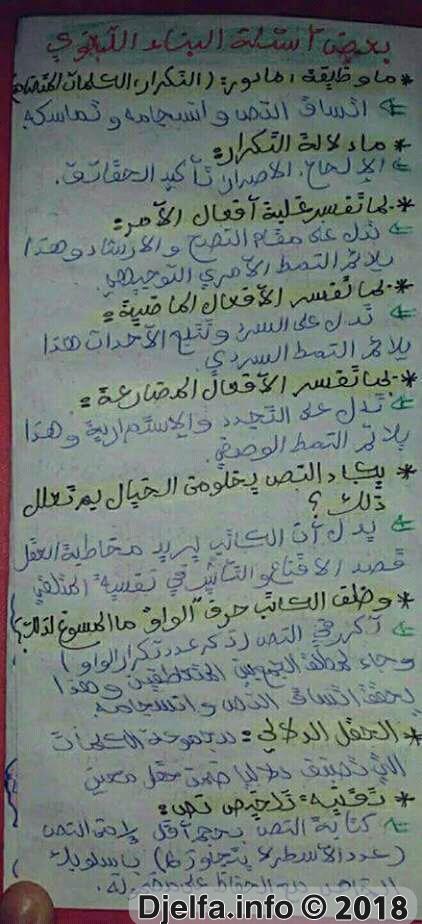 بعض أسئلة البناء اللغوي
* ما وظيفة، ما دور: (التكرار، الكلمات
← اتساق النص وانسجامه وتماسكه
* ما دلالة التكرار:
← الإلحاح. الاصرار تأكيد الحقائق.
* بما تفسر غلبة أفعال الأمر:
← تدل على مقام النصح والارشاد وهذا
يلائم النمط الأمري التوجيهي.
* بما تفسر الأفعال الماضية:
← تدل على السرد وتتبع الأحداث هذا
يلائم النمط السردي.
* بما تفسر الأفعال المضارعة:
← تدل على التجدد والإستمرارية وهذا
يلائم النمط الوصفي.
* يكاد النص يخلو من الخيال بم تعلل
ذلك؟
← يدل أن الكاتب يريد مخاطبة العقل
قصد الاقناع والتأثير في نفسية المتلقي
* وظف الكاتب حرف "الواو" ما المسوغ لذلك؟
← تكرر في النص (نذكر عدد تكرار الواو)
وجاء لمطلق الجمع بين المتعاطفين وهذا
يحقق اتساق النص وانسجامه
* الحقل الدلالي: مجموعة الكلمات
التي تصنف دلاليا ضمن حقل معين
* تقنية تلخيص نص:
← كتابة النص بحجم أقل من النص
(عدد الأسطر لا يتجاوز) بأسلوبك
الحفاظ على
Djelfa.info © 2018